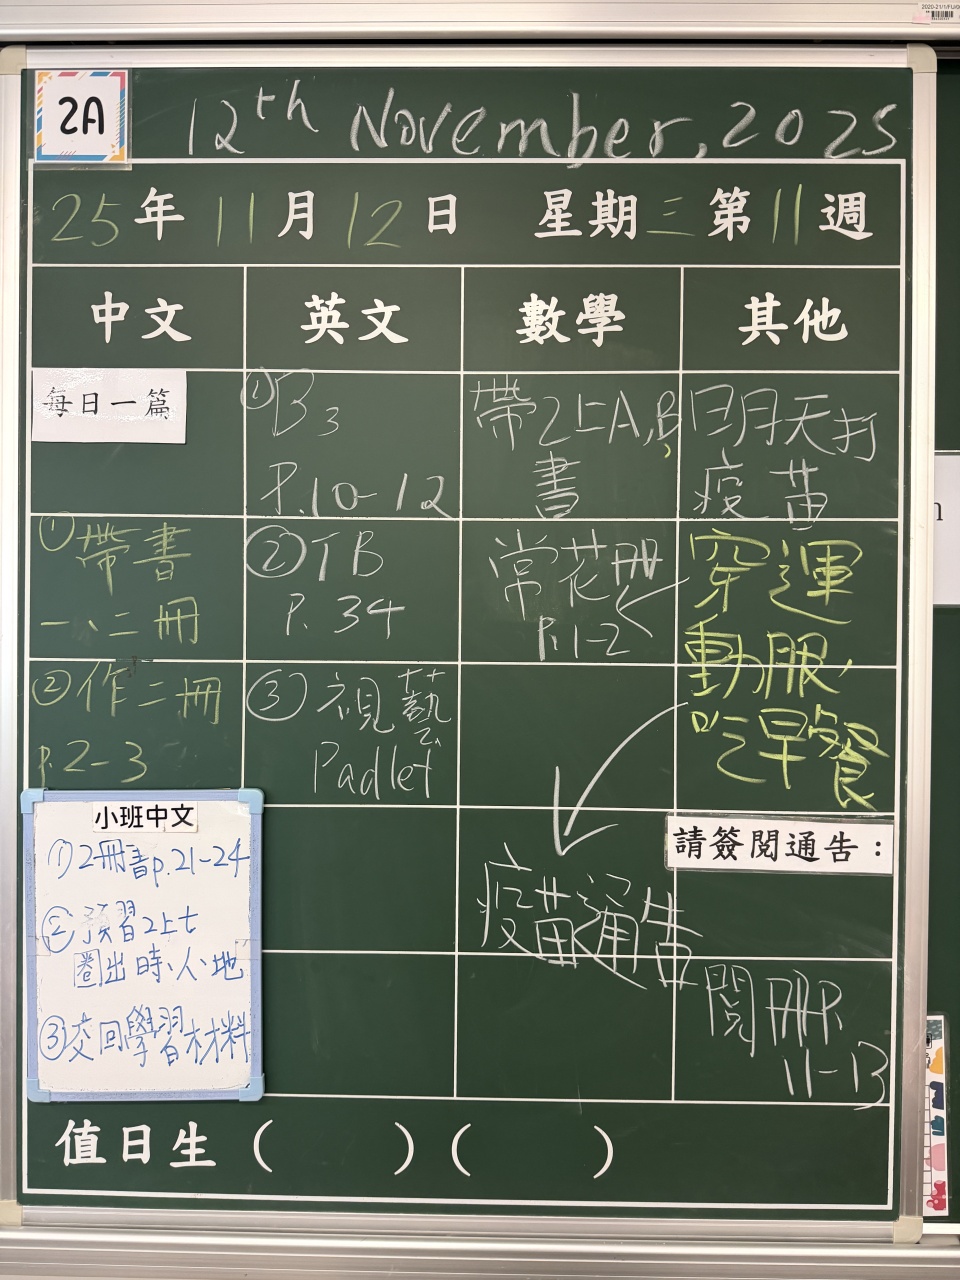 2A
12th November, 2025
25年11月12日 星期三 第11週
中文 英文 數學 其他
每日一篇
①帶書
一、二冊
②作二冊
p.2-3
小班中文
①2冊書p.21-24
②預習2上七
圈出時、人、地
③交回學習材料
①B3
P.10-12
②TB
P.34
③視藝
Padlet
帶2上A,B
書
常花冊
P.1-2
疫苗通告
明天打
疫苗
穿運
動服,
吃早餐
請簽閱通告:
閱冊P.
11-13
值日生( )( )